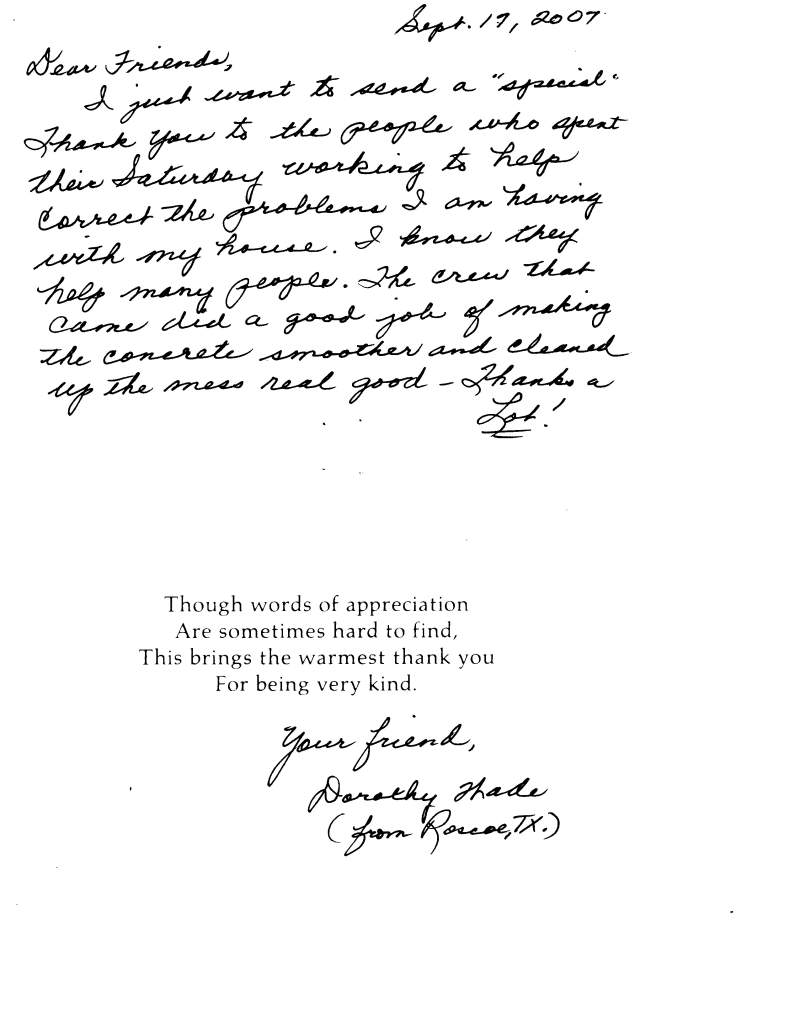 Sept. 17, 2007
Dear Friends,
I just want to send a "special"
Thank You to the people who spent
their Saturday working to help
correct the problems I am having
with my house. I know they
help many people. The crew that
came did a good job of making
the concrete smoother and cleaned
up the mess real good – Thanks a
Lot!
Though words of appreciation
Are sometimes hard to find,
This brings the warmest thank you
For being very kind.
Your friend,
Dorothy
(from Roscoe, TX.)